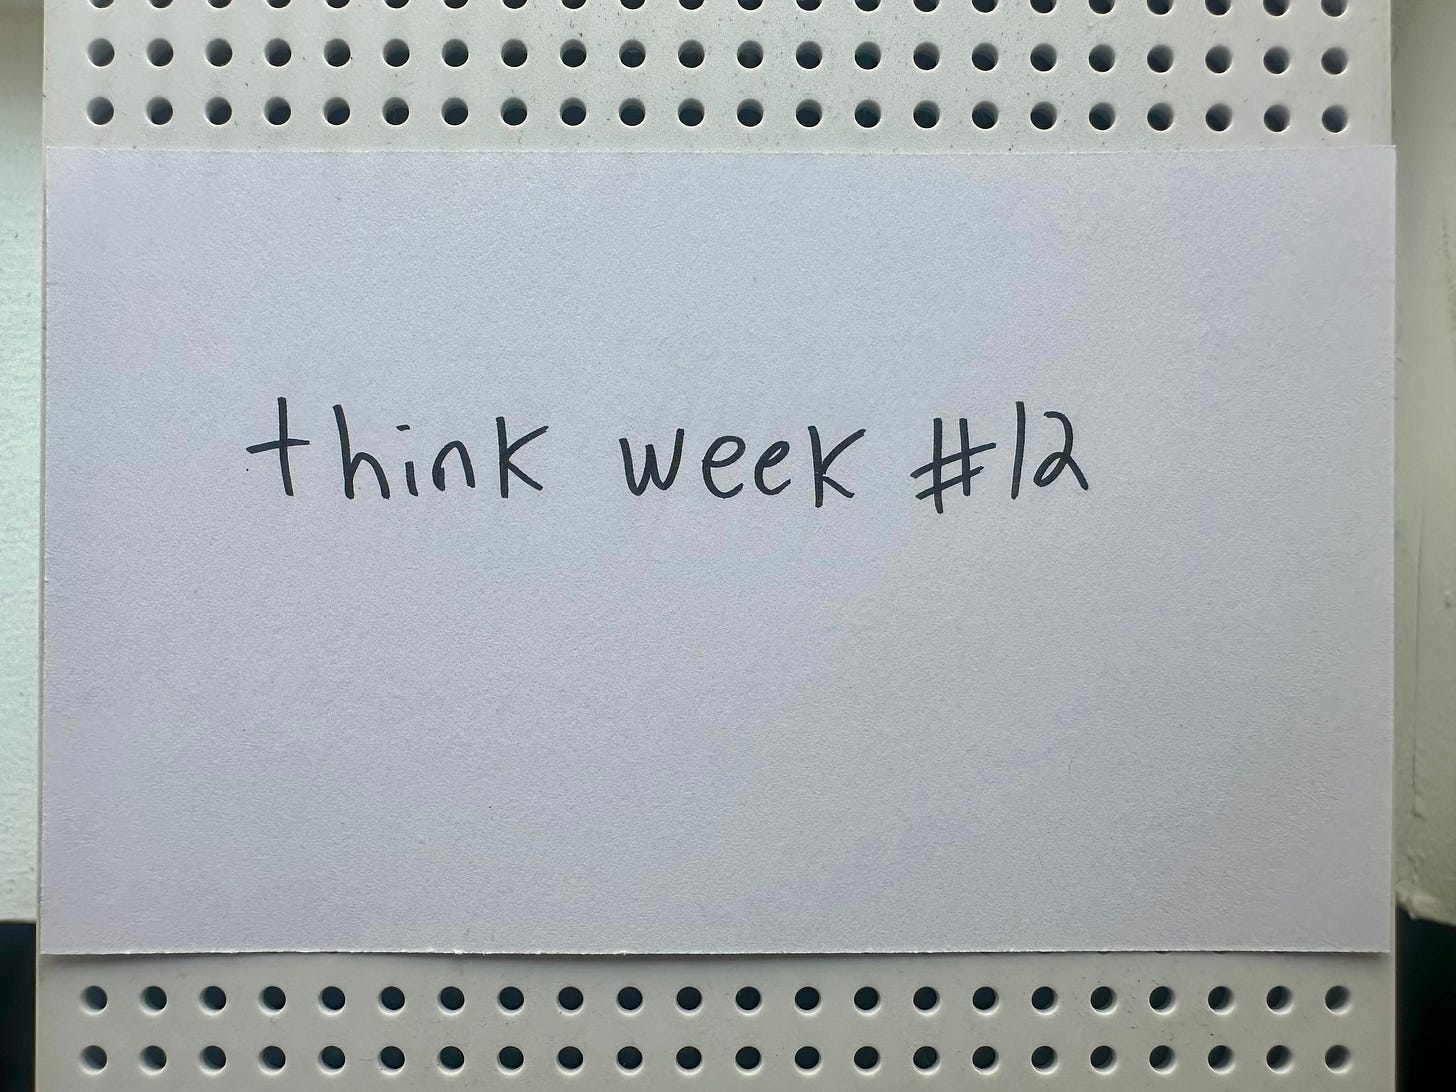 think week #12